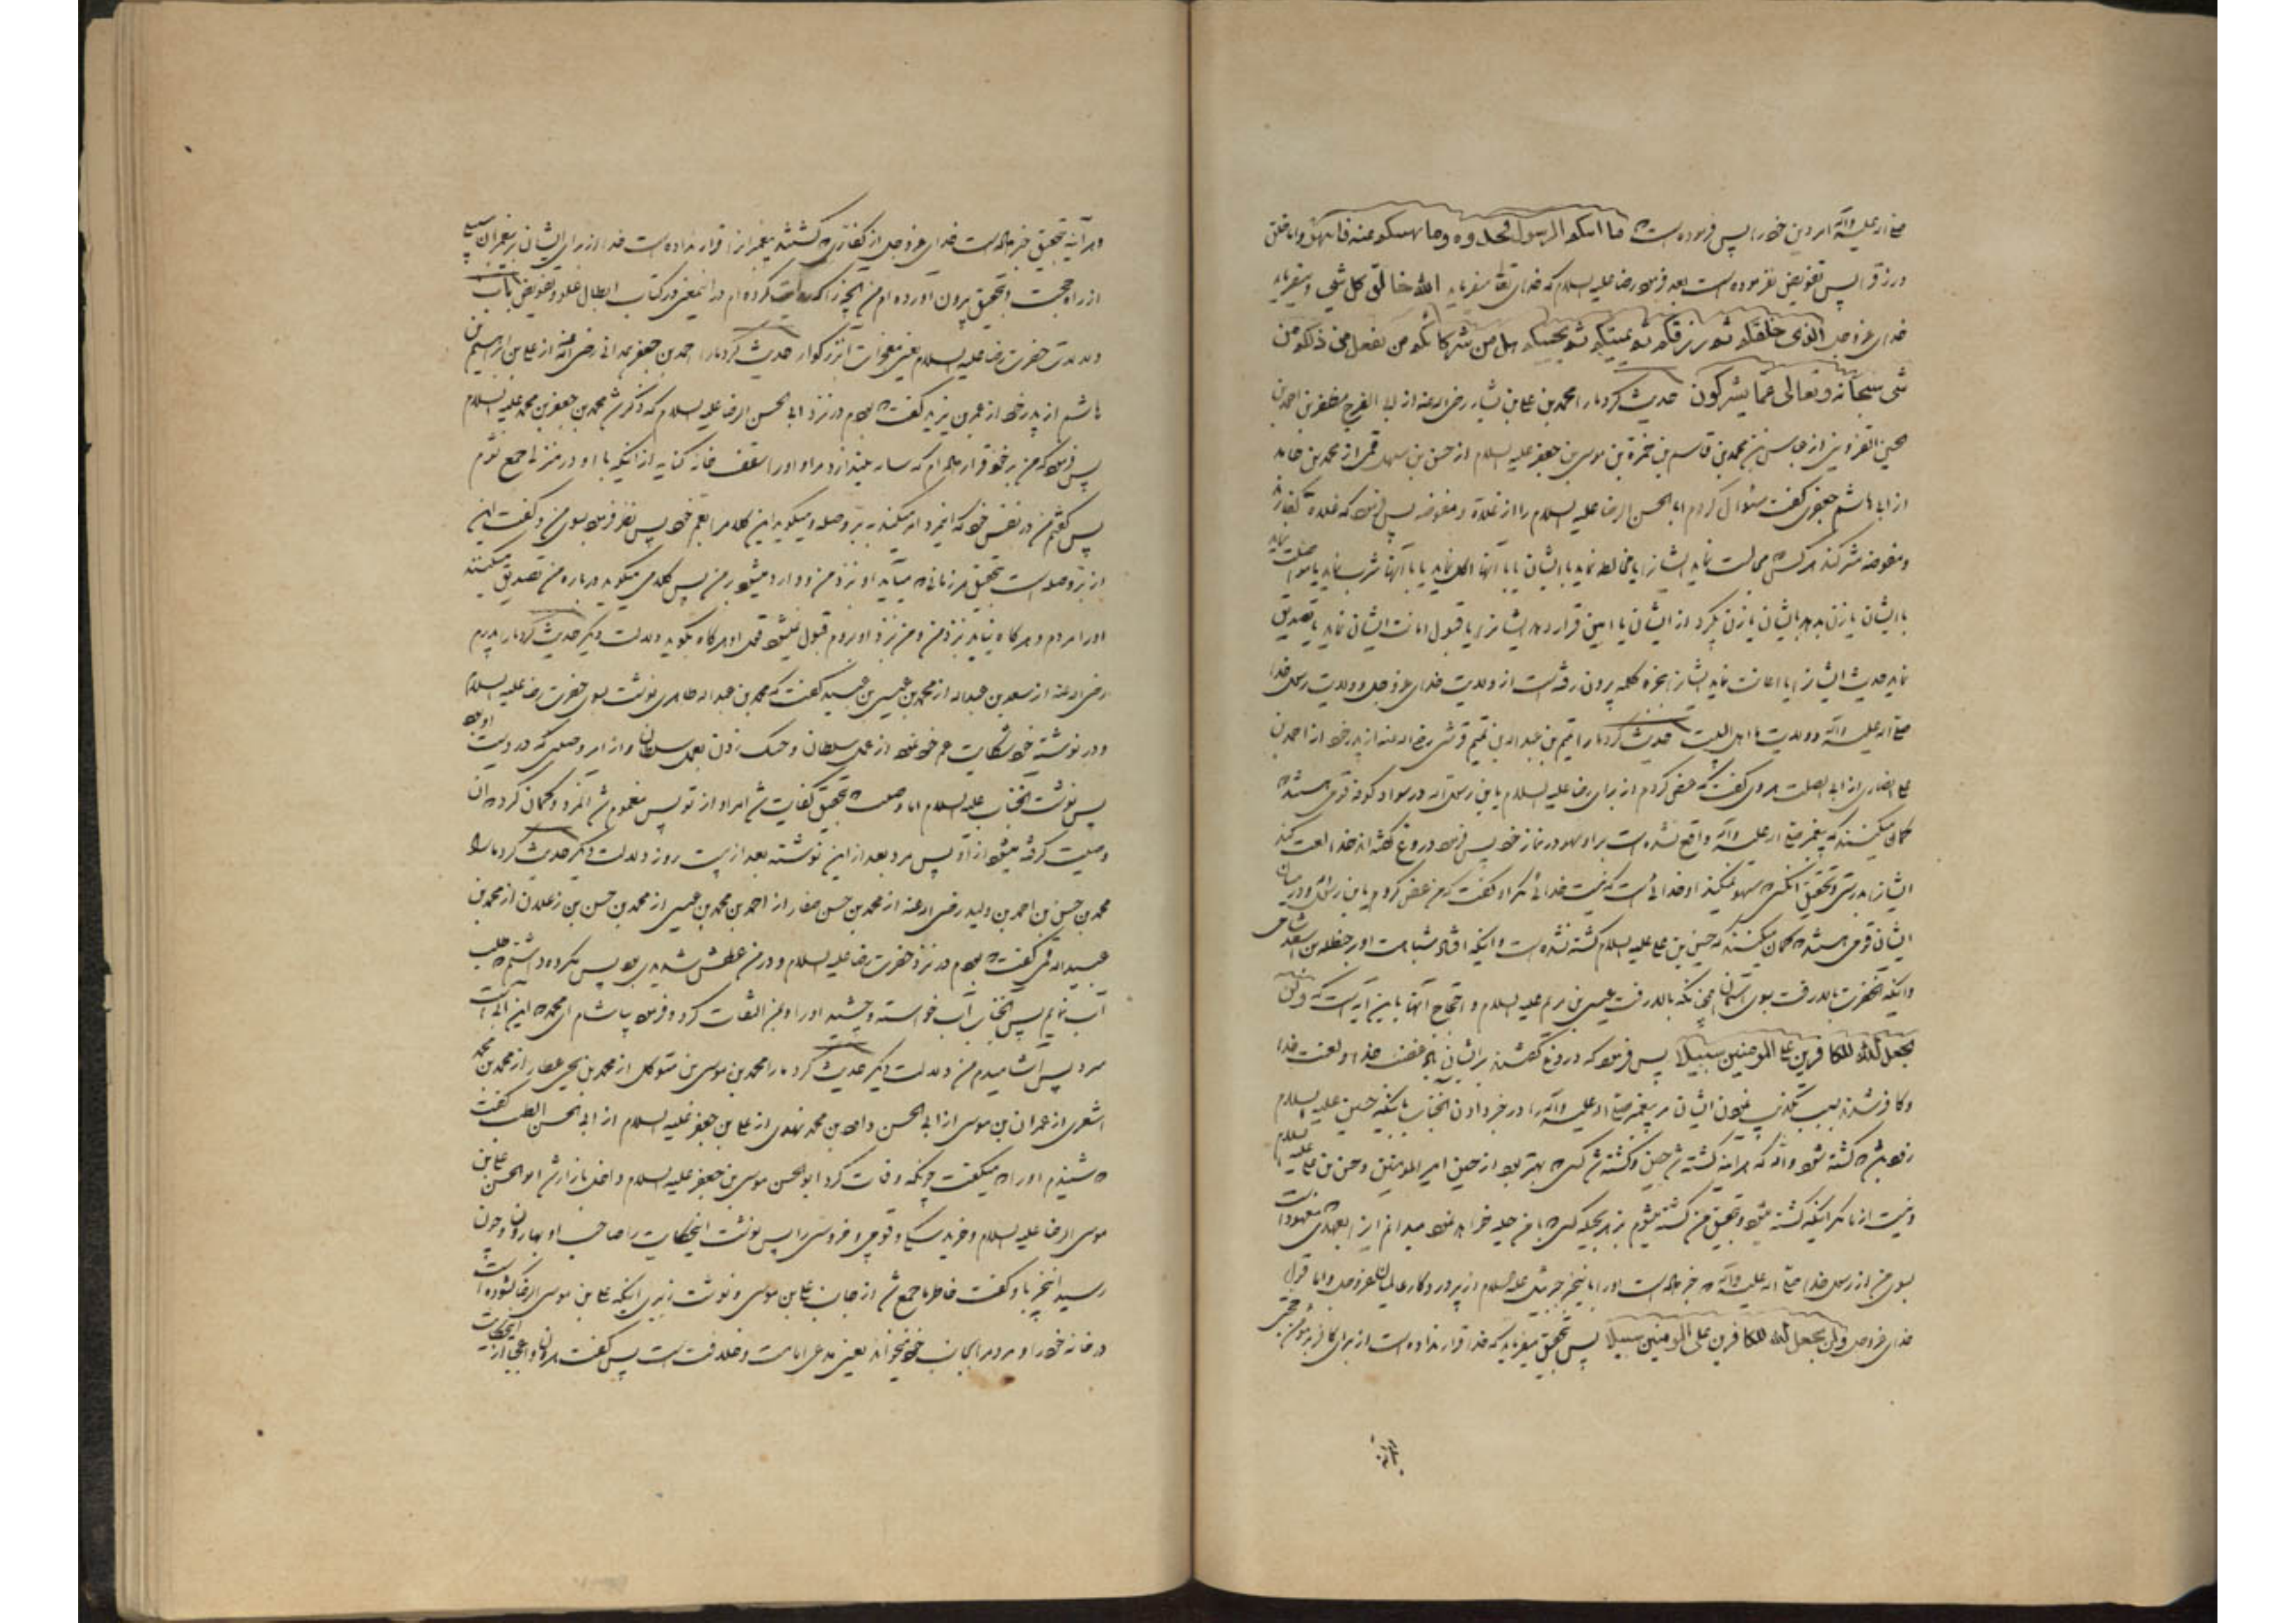 صلی الله علیه وآله امر دین خود را پس فرموده است ما اتیکم الرسول فخذوه وما نهیکم عنه فانتهوا واما خلق
ورزق را پس تفویض نفرموده است بعد فرمود رضا علیه السلام که خدای تعالی میفرماید الله خالق کل شی ومیفرماید
خدای عزوجل الذی خلقکم ثم رزقکم ثم یمیتکم ثم یحییکم هل من شرکائکم من یفعل من ذلکم من
شی سبحانه وتعالی عما یشرکون حدیث کرد ما را محمد بن علی بن بشار رضی الله عنه از ابی الفرج مظفر بن احمد بن
حسن القزوینی از عباس بن محمد بن قاسم بن حمزة بن موسی بن جعفر علیه السلام از حسن بن سهل قمی از محمد بن حامد
از ابی هاشم جعفری گفت سئوال کردم ابا الحسن الرضا علیه السلام را از غلاة ومفوضه پس فرمود که غلاة کفارند
ومفوضه مشرکند هر کس مجالست نماید ایشانرا یا مخالطه نماید با ایشان یا با آنها اکل نماید یا با آنها شرب نماید یا مواصلت نماید
با ایشان یا زن بدهد بایشان یا زن بگیرد از ایشان یا امین قرار دهد ایشانرا یا قبول امانت ایشان نماید یا تصدیق
نماید حدیث ایشانرا یا اعانت نماید ایشانرا بجزء کلمه بیرون رفته است از ولایت خدای عزوجل وولایت رسول خدا
صلی الله علیه وآله وولایت ما اهل البیت حدیث کرد ما را تمیم بن عبدالله بن تمیم قرشی رضی الله عنه از پدر خود از احمد بن
علی انصاری از ابی الصلت هروی گفت که عرض کردم از برای رضا علیه السلام یابن رسول الله در سواد کوفه قومی هستند که
گمان میکنند که پیغمبر صلی الله علیه وآله واقع نشده است بر او سهو در نماز خود پس فرمود دروغ گفته اند خدا لعنت کند
ایشانرا بدرستی وتحقیق آنکس که سهو نمیکند او خدائی است که نیست خدائی مگر او گفت که عرض کردم یابن رسول الله ودر میان
ایشان قومی هستند که گمان میکنند که حسین بن علی علیه السلام کشته نشده است واینکه افتاد شباهت او بر حنظله بن اسعد شامی
واینکه آنحضرت بالا رفت بسوی آسمان همچنانکه بالا رفت عیسی بن مریم علیه السلام واحتجاج آنها باین آیه است که ولن
یجعل الله للکافرین علی المومنین سبیلا پس فرمود که دروغ گفتند بر ایشان باد غضب خدا ولعنت خدا
وکافر شدند بسبب تکذیب نمودن ایشان مر پیغمبر صلی الله علیه وآله را در خبر دادن آنجناب باینکه حسین علیه السلام
زود باشد که کشته شود والله که هر آینه کشته شد حسین وکشته شد کسی که بهتر بود از حسین امیر المومنین وحسن بن علی علیه السلام
ونیست از ما مگر اینکه کشته میشود وبتحقیق من کشته میشوم بزهر بحیله کسی که با من حیله خواهد نمود میدانم این را بعهدی که معهود است
بسوی من از رسول خدا صلی الله علیه وآله که خبر داده است او را باین خبر جبرئیل علیه السلام از پروردگار عالمیان عزوجل واما قول
خدای عزوجل ولن یجعل الله للکافرین علی المومنین سبیلا پس بتحقیق میفرماید که خدا قرار نداده است از برای کافر بر مومن حجتی
وهر آینه بتحقیق خبر داده است خدای عزوجل از کفاری که کشتند پیغمبرانرا قرار نداده است خدا از برای ایشان بر پیغمبران سبیلی
از راه حجت وبتحقیق بیرون آورده ام من آنچه را که روایت کرده ام در اینمعنی در کتاب ابطال غلو وتفویض باب
دلالات حضرت رضا علیه السلام یعنی معجزات آنبزرگوار حدیث کرد ما را احمد بن جعفر همدانی رضی الله عنه از علی بن ابراهیم بن
هاشم از پدر خود از عمر بن یزید گفت که بودم در نزد ابی الحسن الرضا علیه السلام که ذکر شد محمد بن جعفر بن محمد علیه السلام
پس فرمود که من بر خود قرار داده ام که سایه نیندازد مرا و او را سقف خانه کنایه از اینکه با او در منزلی جمع نشوم
پس گفتم من در نفس خود که اینمرد امر میکند به بر وصله ومیگوید این کلام را بعم خود پس نظر فرمود بسوی من وگفت این
از بر وصله است بتحقیق هر زمانی که میآید او نزد من ووارد میشود بر من پس کلامی میگوید درباره من تصدیق میکنند
او را مردم وهر گاه نیاید نزد من ومن نزد او نروم قبول نمیشود قول او هر گاه بگوید دلالت دیگر حدیث کرد ما را پدرم
رضی الله عنه از سعد بن عبدالله از محمد بن عیسی بن عبید گفت که محمد بن عبدالله طاهری نوشت بسوی حضرت رضا علیه السلام
ودر نوشته خود شکایت عم خود نمود از عمل سلطان وچنک زدن بعمل سلطان واز امر وصیتی که در دست او بود
پس نوشت آنجناب علیه السلام اما وصیت که بتحقیق کفایت شد امر او از تو پس مغموم شد آنمرد وگمان کرد که آن
وصیت گرفته میشود از او پس مرد بعد از این نوشته بعد از بیست روز دلالت دیگر حدیث کرد ما را
محمد بن حسن بن احمد بن ولید رضی الله عنه از محمد بن حسن صفار از احمد بن محمد بن عیسی از محمد بن حسن بن زعلان از محمد بن
عبیدالله قمی گفت که بودم در نزد حضرت رضا علیه السلام ودر من عطش شدیدی بود پس مکروه داشتم که طلب
آب نمایم پس آنجناب آب خواسته وچشید او را وبمن التفات کرد وفرمود بیاشام ای محمد که این آب است
سرد پس آشامیدم من دلالت دیگر حدیث کرد ما را محمد بن موسی بن متوکل از محمد بن یحیی عطار از محمد بن احمد
اشعری از عمران بن موسی از ابی الحسن داود بن محمد نهدی از علی بن جعفر علیه السلام از ابی الحسن الطیب گفت
که شنیدم او را که میگفت چونکه وفات کرد ابو الحسن موسی بن جعفر علیه السلام داخل بازار شد ابو الحسن علی بن
موسی الرضا علیه السلام وخرید سگی وقوچی وخروسی را پس نوشت اینحکایت را صاحب او بهارون وچون
رسید اینخبر باو گفت خاطر ما جمع شد از جانب علی بن موسی ونوشت زبیری اینکه علی بن موسی الرضا گشوده است
در خانه خود را ومردم را بجانب خود میخواند یعنی مدعی امامت وخلافت است پس گفت هارون واعجبا از اینحکایت